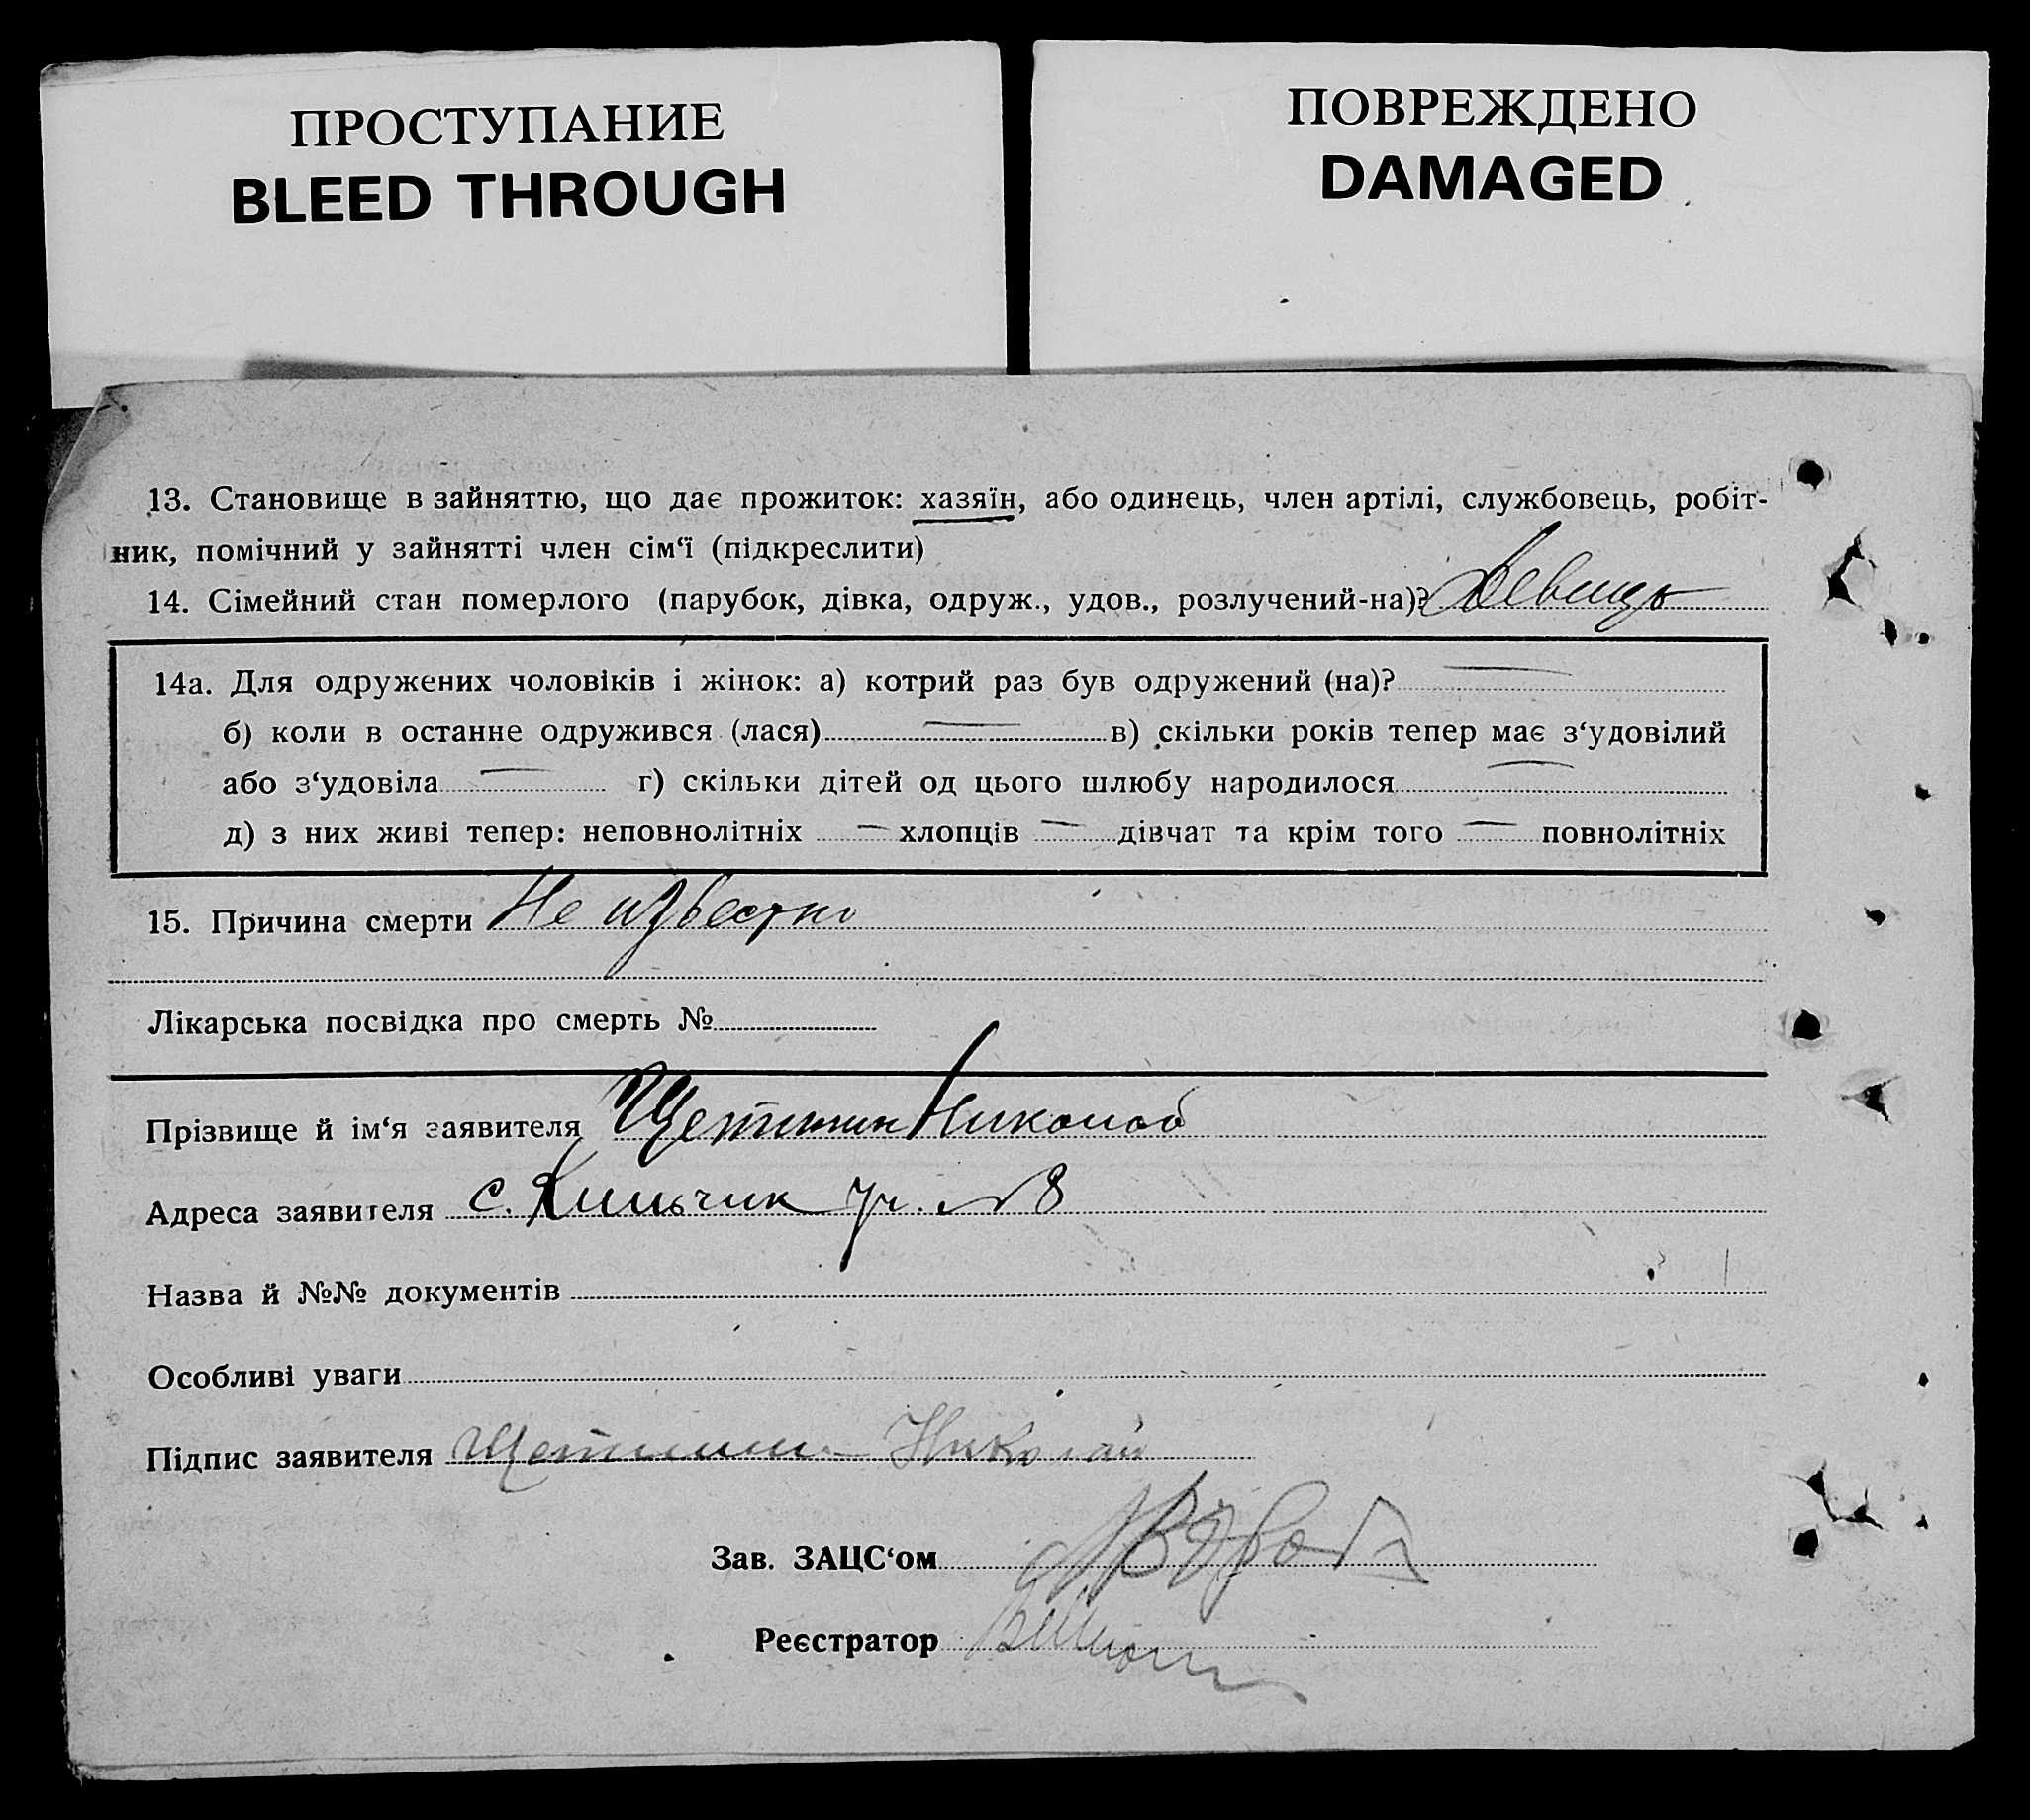 ПРОСТУПАНИЕ
BLEED THROUGH
ПОВРЕЖДЕНО
DAMAGED
13. Становище в зайняттю, що дає прожиток: хазяїн, або одинець, член артілі, службовець, робіт-
ник, помічний у зайнятті член сім‘ї (підкреслити)
14. Сімейний стан померлого (парубок, дівка, одруж., удов., розлучений-на)? Девица
14а. Для одружених чоловіків і жінок: а) котрий раз був одружений (на)? —
б) коли в останне одружився (лася) — в) скільки років тепер має з‘удовілий
або з‘удовіла — г) скільки дітей од цього шлюбу народилося —
д) з них живі тепер: неповнолітніх — хлопців — дівчат та крім того — повнолітніх
15. Причина смерти Не известно
Лікарська посвідка про смерть №
Прізвище й ім‘я заявителя Щетинин Николай
Адреса заявителя с. Кильчик уч. №8
Назва й №№ документів
Особливі уваги
Підпис заявителя Щетинин Николай
Зав. ЗАЦС‘ом
Реєстратор